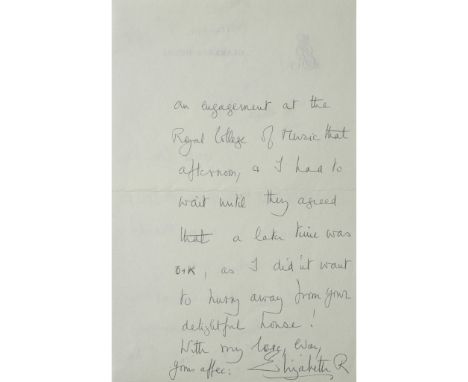 an engagement at the
Royal College of Music that
afternoon, & I had to
wait until they agreed
that a later time was
O+K, as I did'nt want
to hurry away from your
delightful house!
With my love,
your affec: Elizabeth R